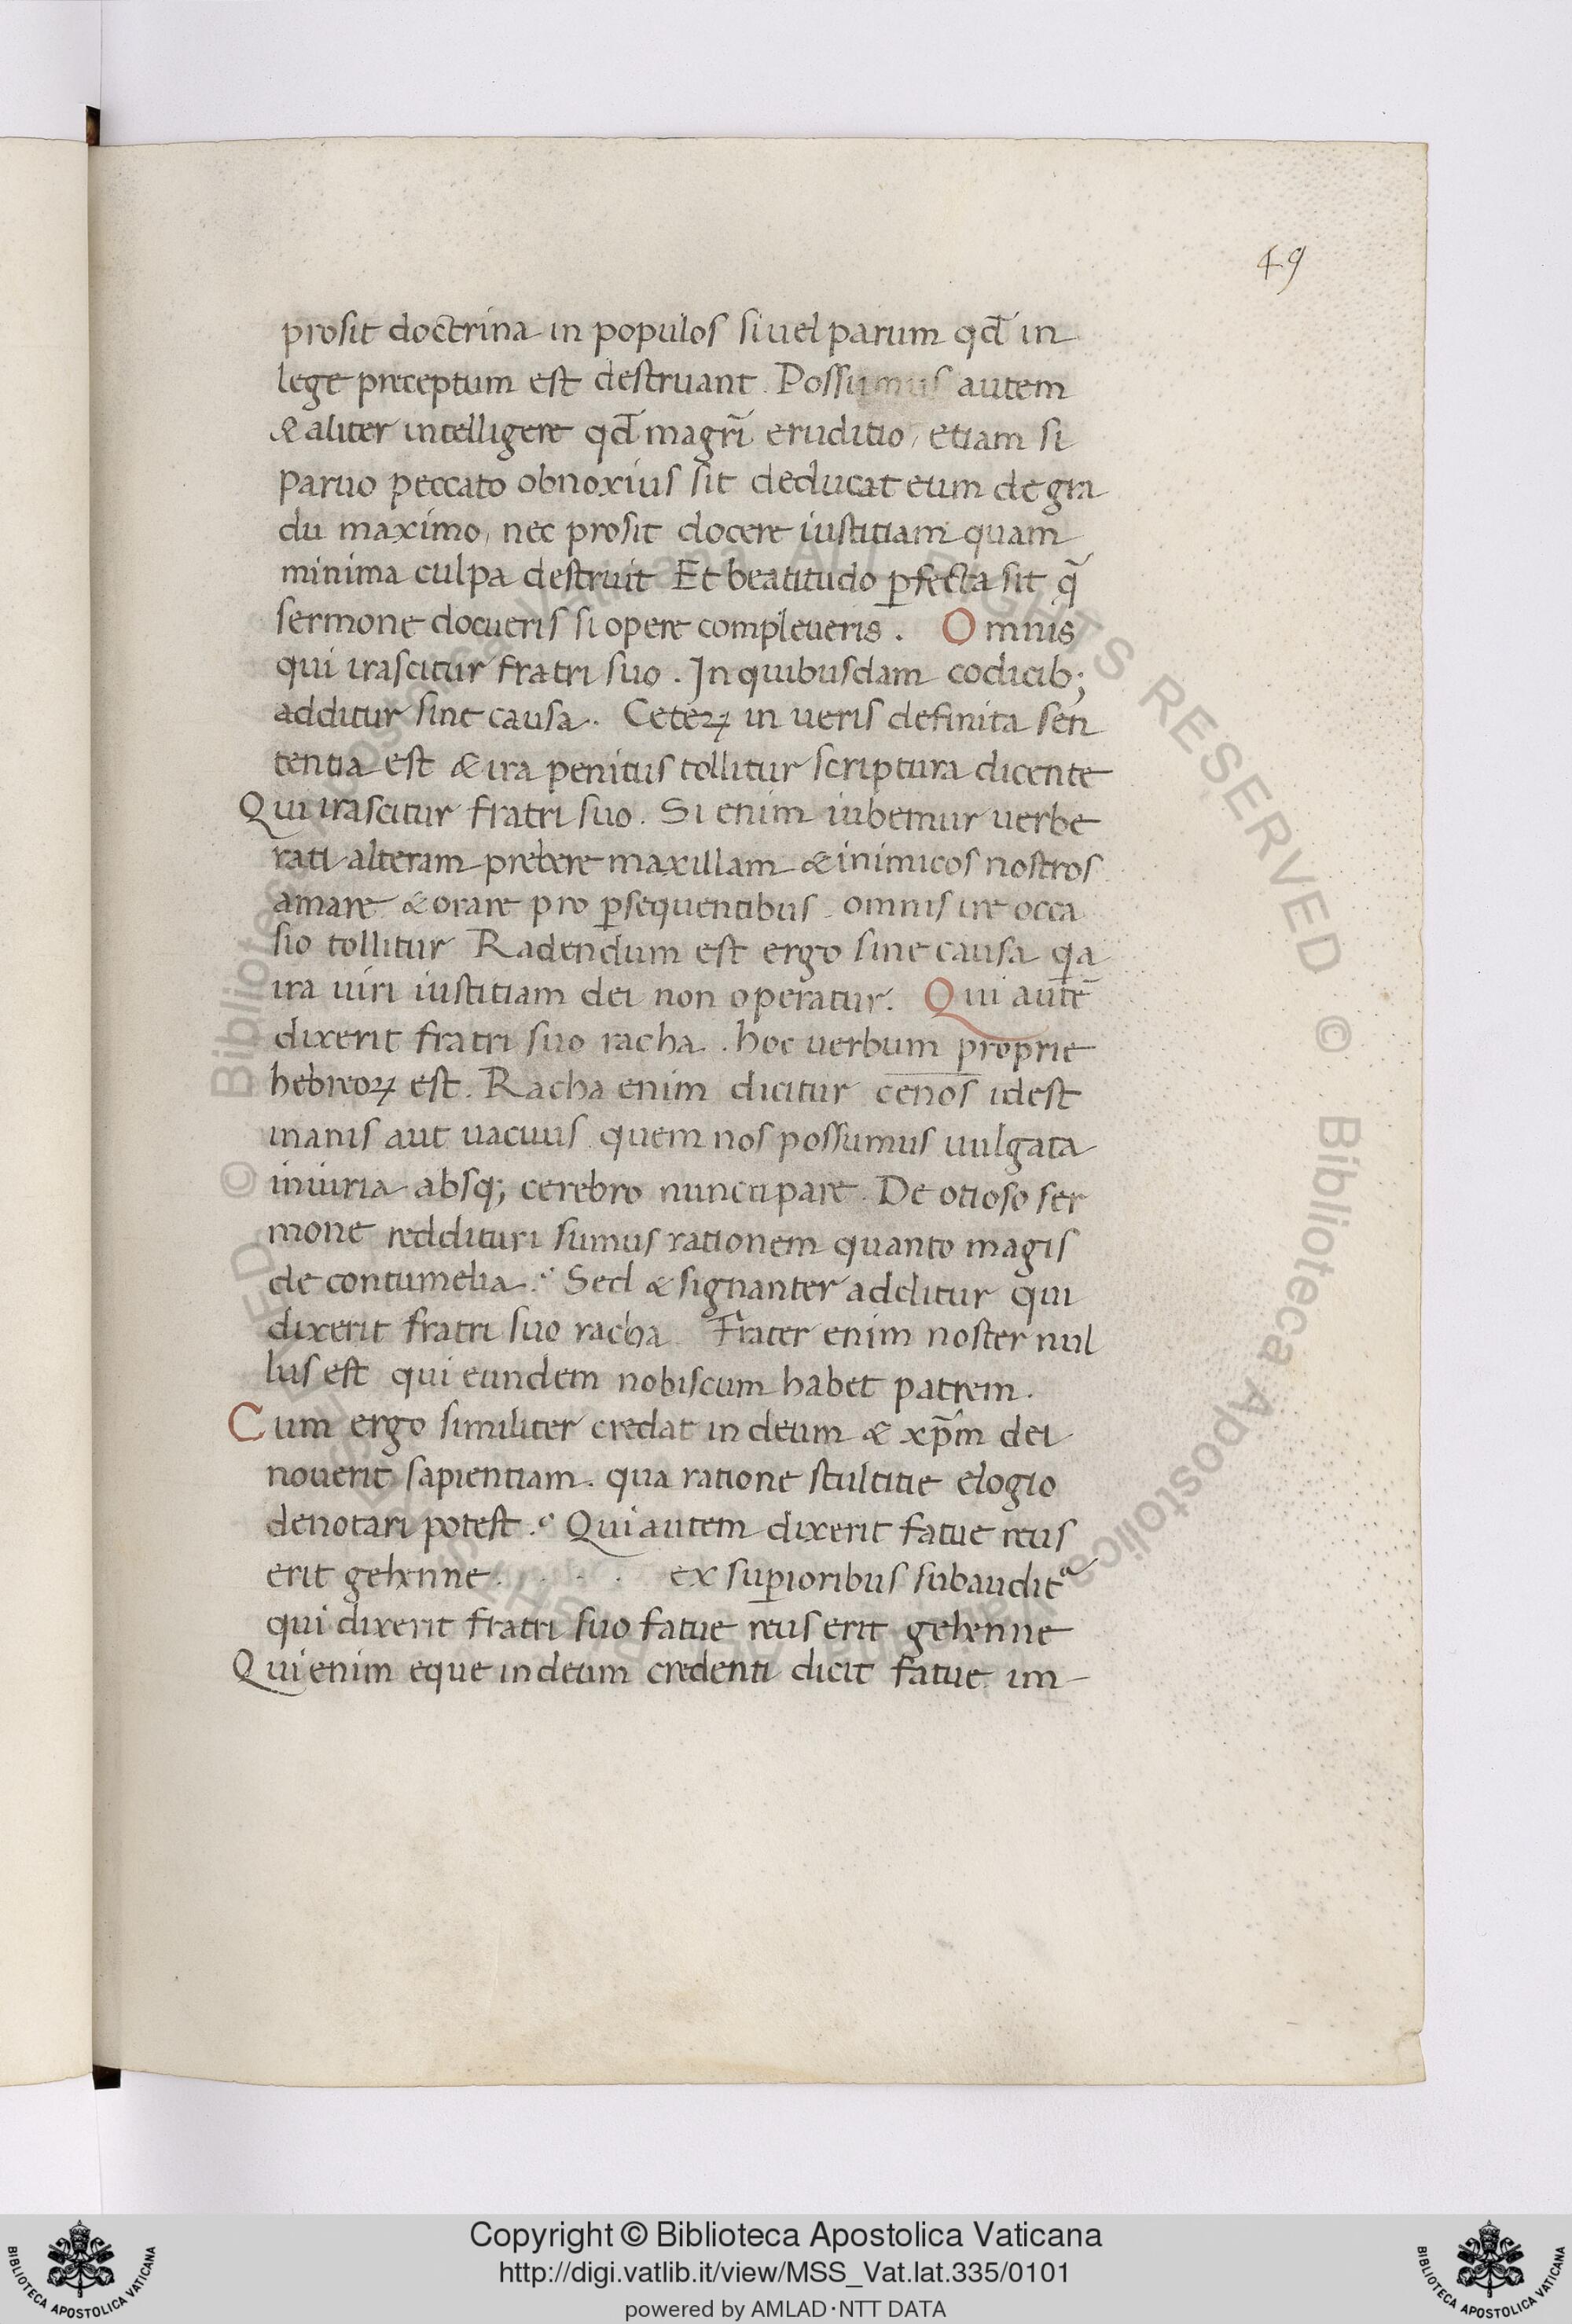 49
prosit doctrina in populos si uel parum qd̄ in
lege preceptum est destruant. Possumus autem
& aliter intelligere qd̄ magr̄i eruditio, etiam si
paruo peccato obnoxius sit deducat eum de gra
du maximo, nec prosit docere iustitiam quam
minima culpa destruit Et beatitudo ꝑfecta sit q̄
sermone docueris si opere compleueris. Omnis
qui irascitur fratri suo. In quibusdam codicib;
additur sine causa. Ceteꝝ in ueris definita sen
tentia est & ira penitus tollitur scriptura dicente
Qui irascitur fratri suo. Si enim iubemur uerbe
rati alteram prebere maxillam & inimicos nostros
amare & orare pro ꝑsequentibus. omnis ire occa
sio tollitur Radendum est ergo sine causa qa
ira uiri iustitiam dei non operatur. Qui autē
dixerit fratri suo racha. hoc uerbum proprie
hebreoꝝ est. Racha enim dicitur cenos idest
inanis aut uacuus quem nos possumus uulgata
iniuria absq; cerebro nuncupare. De otioso ser
mone reddituri sumus rationem quanto magis
de contumelia. Sed & signanter additur qui
dixerit fratri suo racha. Frater enim noster nul
lus est qui eundem nobiscum habet patrem.
Cum ergo similiter credat in deum & xp̄m dei
nouerit sapientiam. qua ratione stultitie elogio
denotari potest. Qui autem dixerit fatue reus
erit gehenne. . . . . ex suꝑioribus subauditᵃ
qui dixerit fratri suo fatue reus erit gehenne
Qui enim eque in deum credenti dicit fatue im-
© Biblioteca Apostolica Vaticana ALL RIGHTS RESERVED
© Biblioteca Apostolica Vaticana
BIBLIOTECA APOSTOLICA VATICANA
Copyright © Biblioteca Apostolica Vaticana
http://digi.vatlib.it/view/MSS_Vat.lat.335/0101
powered by AMLAD·NTT DATA
BIBLIOTECA APOSTOLICA VATICANA